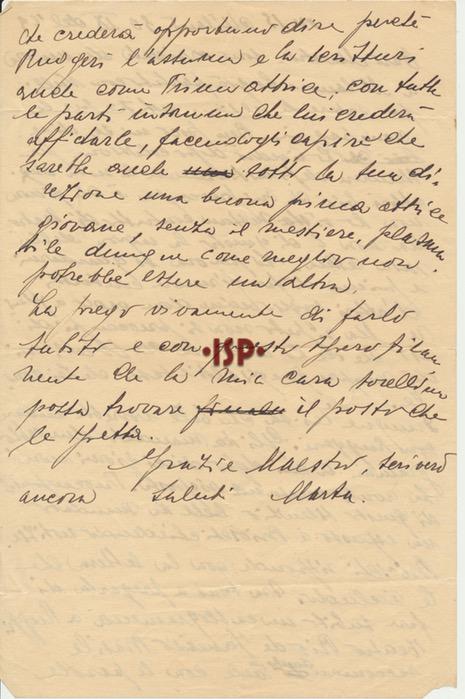 che crederà opportuno dire perchè
Ruggeri l'assuma e la scritturi
anche come Prima attrice, con tutte
le parti insomma che lui crederà
affidarle, facendogli capire che
sarebbe anche una sotto la sua di-
rezione una buona prima attrice
giovane, senza il mestiere, plasma
bile dunque come meglio non
potrebbe essere un'altra.
La prego vivamente di farlo
subito e con questo spero final
mente che la mia cara sorellina
possa trovare il posto che
le spetta.
Grazie Maestro, scriverò
ancora Saluti Marta.
·ISP·